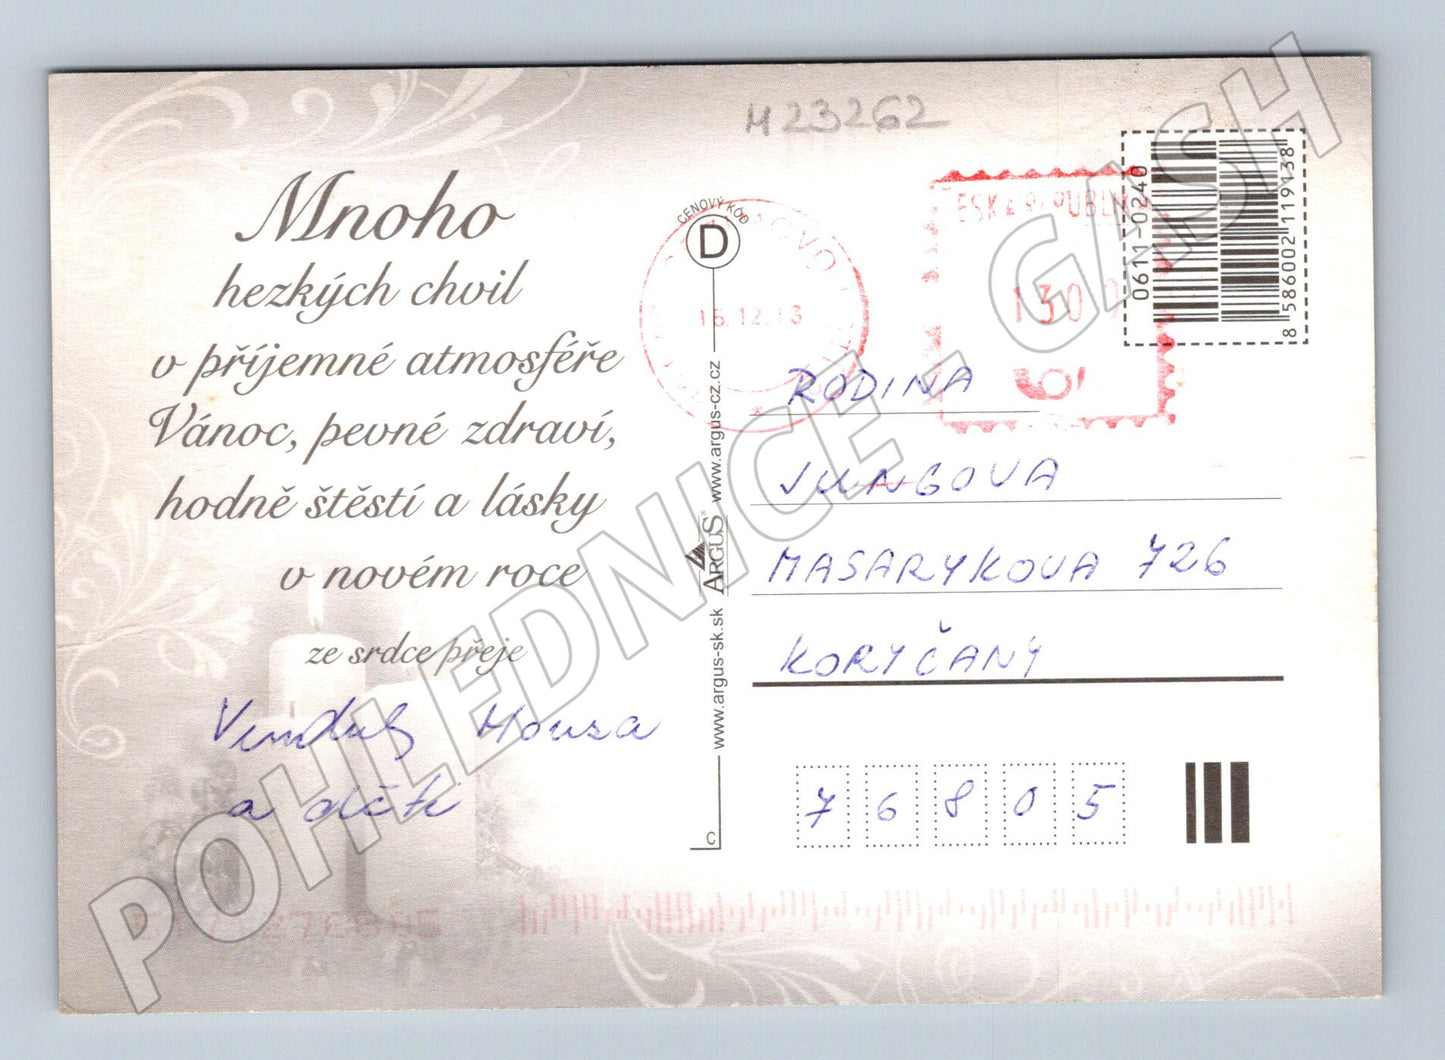 M23262
Mnoho
hezkých chvil
v příjemné atmosféře
Vánoc, pevné zdraví,
hodně štěstí a lásky
v novém roce
ze srdce přeje
a děti
CENOVÝ KÓD
D
www.argus-sk.sk ARGUS® www.argus-cz.cz
C
16.12.13
ESKÁ REPUBLIK
1300
0611-0240
8 586002 119138
RODINA
JUNGOVA
MASARYKOVA 726
KORYČANY
76805
POHLEDNICE - GASH